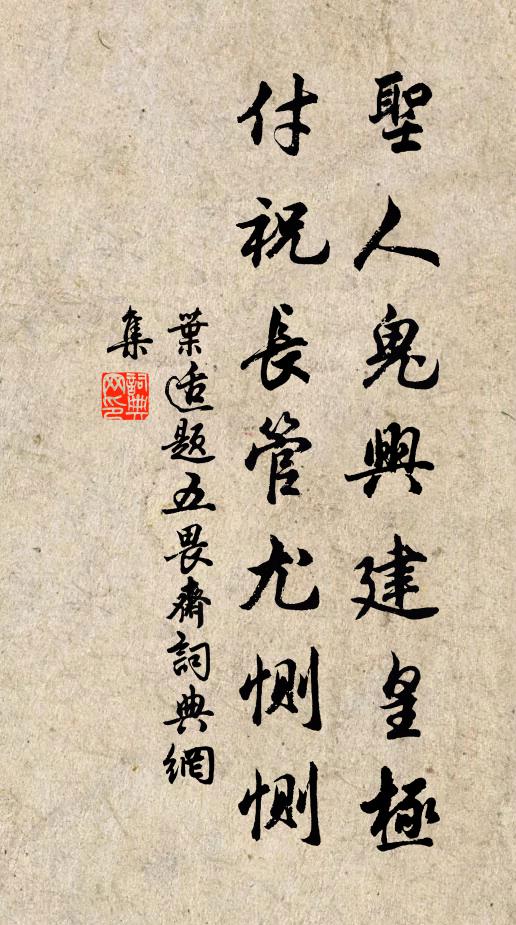 聖人鬼興建皇極
付祝長管尤惻惻
葉适題五畏齋詞典網
集
詞典网印